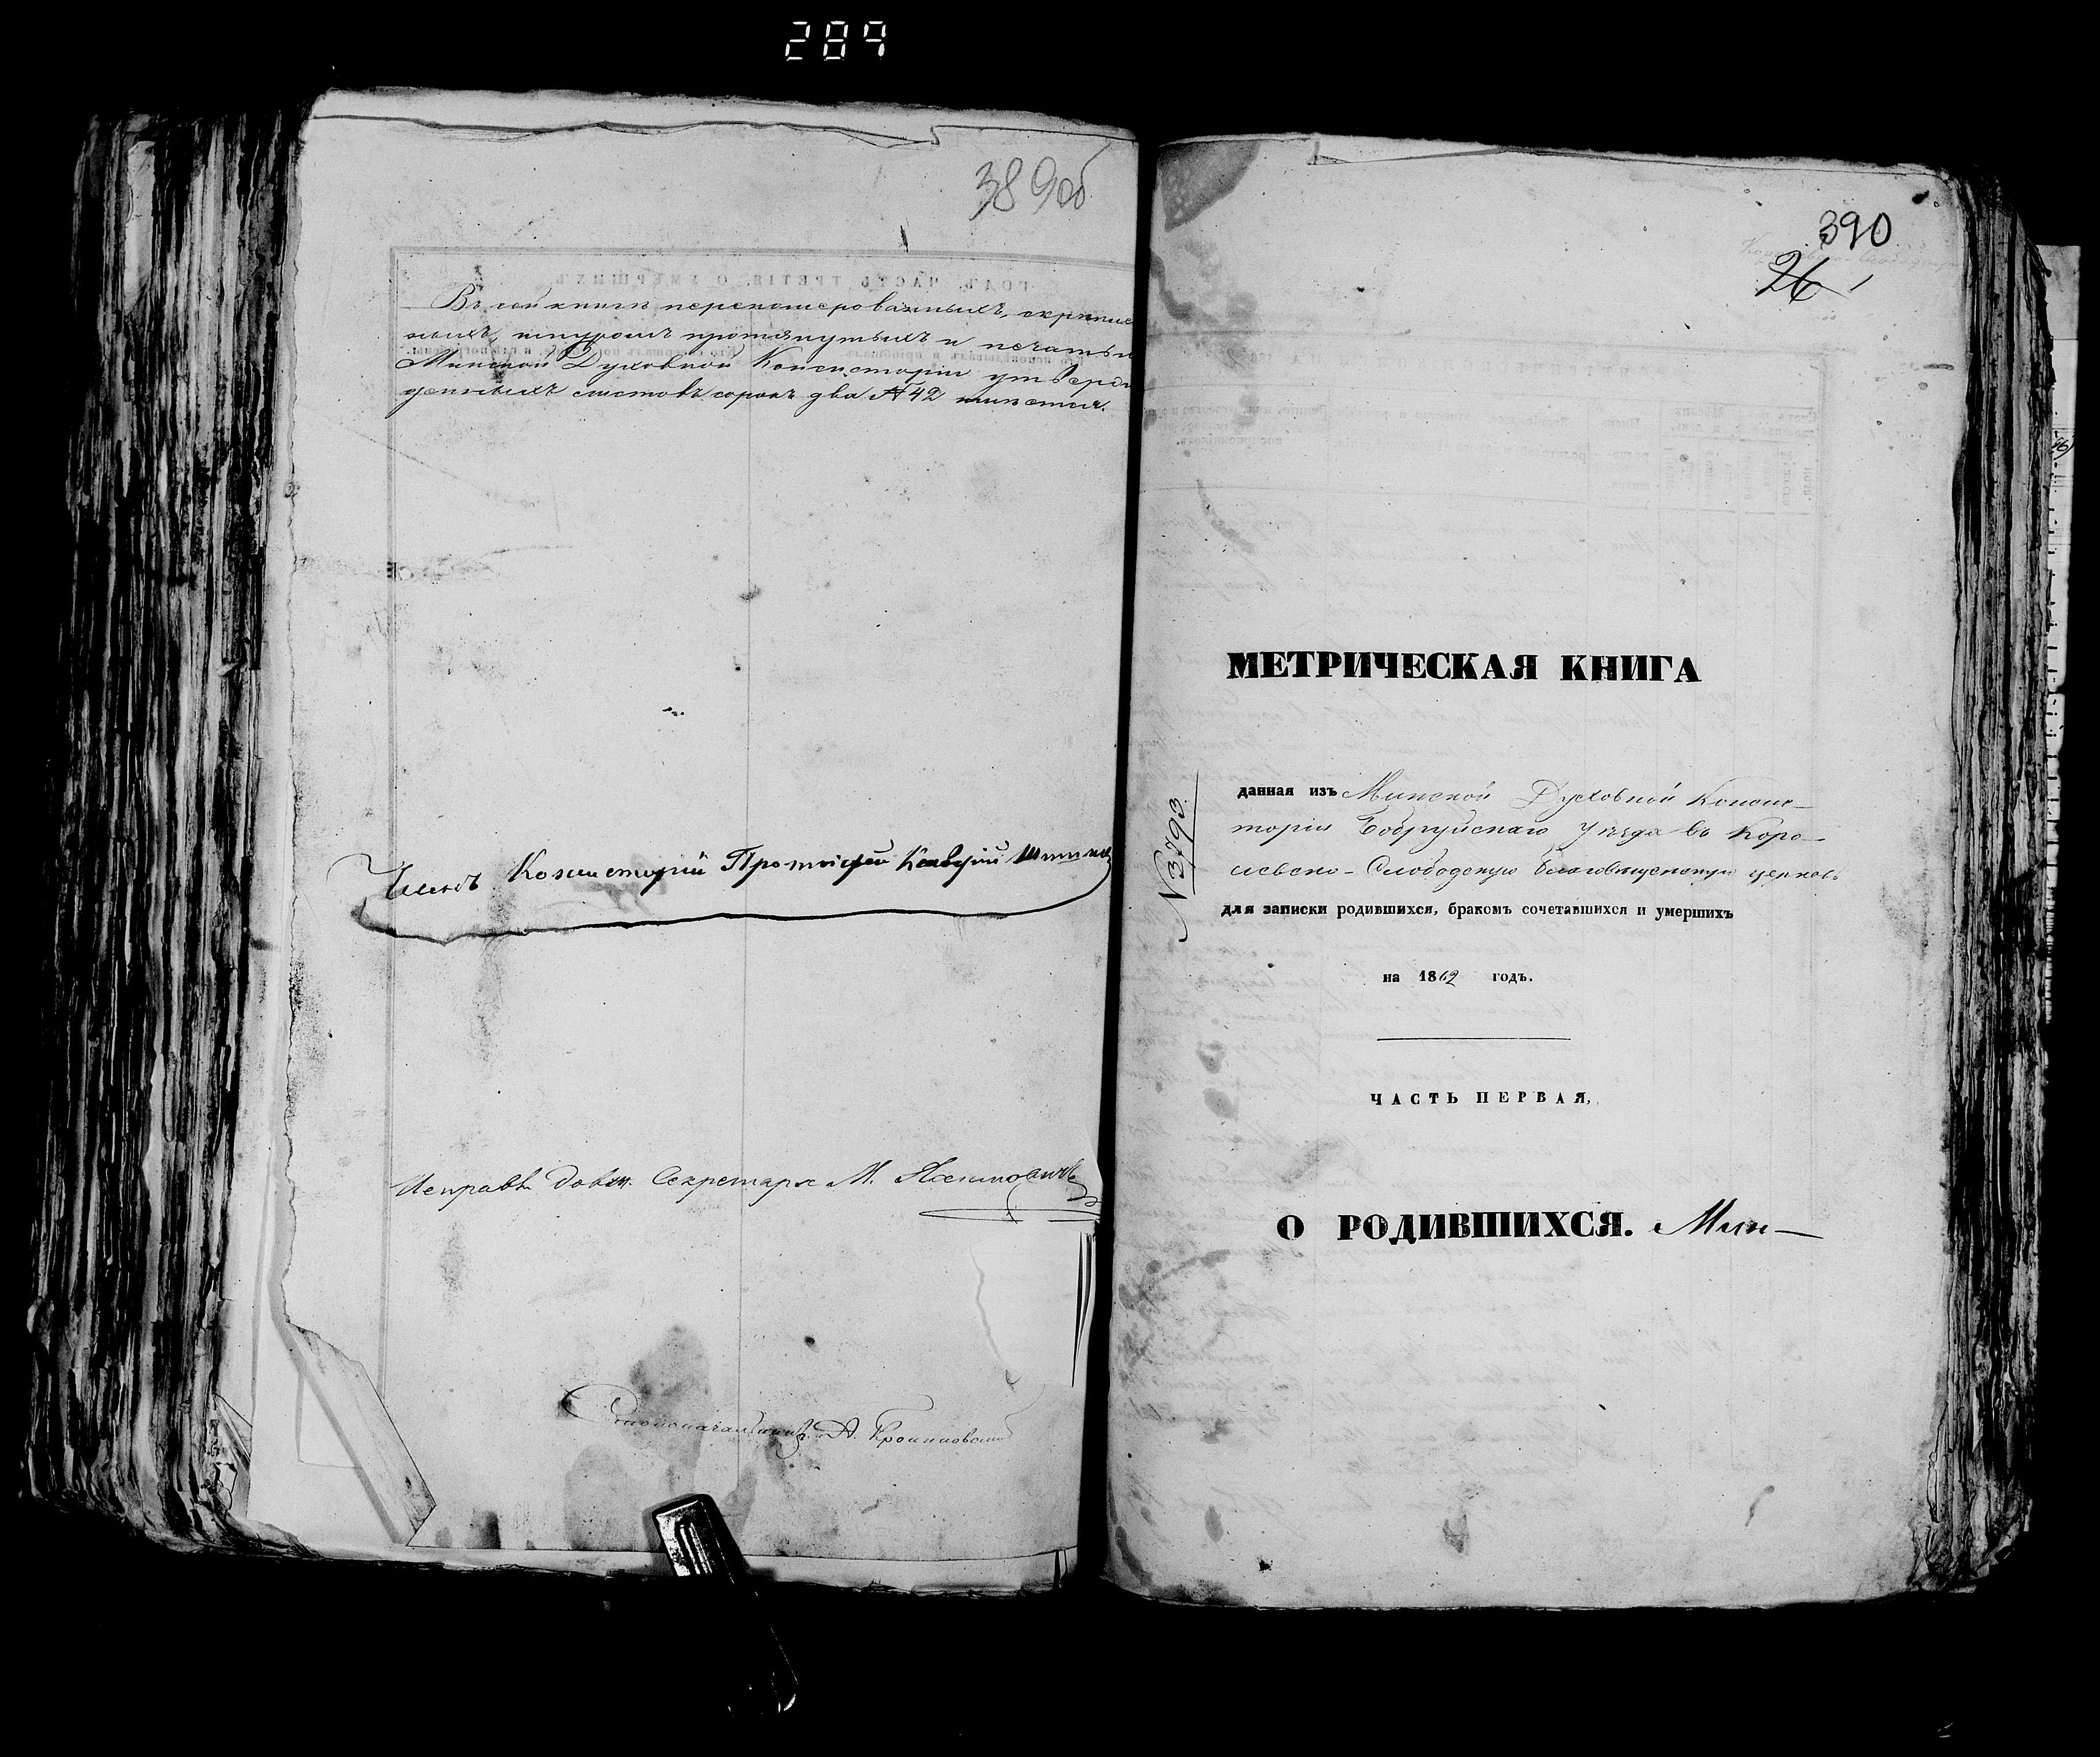 289
389об
Въ сей книгѣ перенумерованныхъ, скрѣплен
ныхъ, шнуромъ протянутыхъ и печатью
Минской Духовной Консисторіи утверж
денныхъ листовъ сорокъ два № 42 имѣется.
Членъ Консисторіи Протоіерей
Исправ. долж. Секретаря М.
Столоначальникъ А.
390
26
МЕТРИЧЕСКАЯ КНИГА
№ 3793
данная изъ Минской Духовной Консис-
торіи Бобруйскаго Уѣзда въ Коро-
левско-Слободскую Благовѣщенскую церковь
для записки родившихся, бракомъ сочетавшихся и умершихъ
на 1862 годъ.
ЧАСТЬ ПЕРВАЯ,
О РОДИВШИХСЯ. Мин-